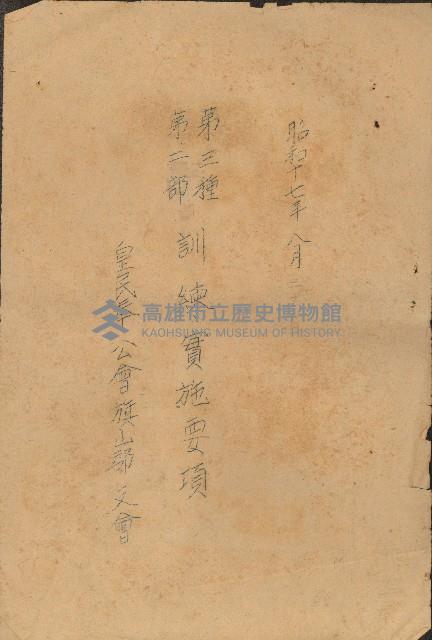 昭和十七年八月
第三種
第二部
訓練實施要項
皇民奉公會旗山郡支會
高雄市立歷史博物館
KAOHSIUNG MUSEUM OF HISTORY